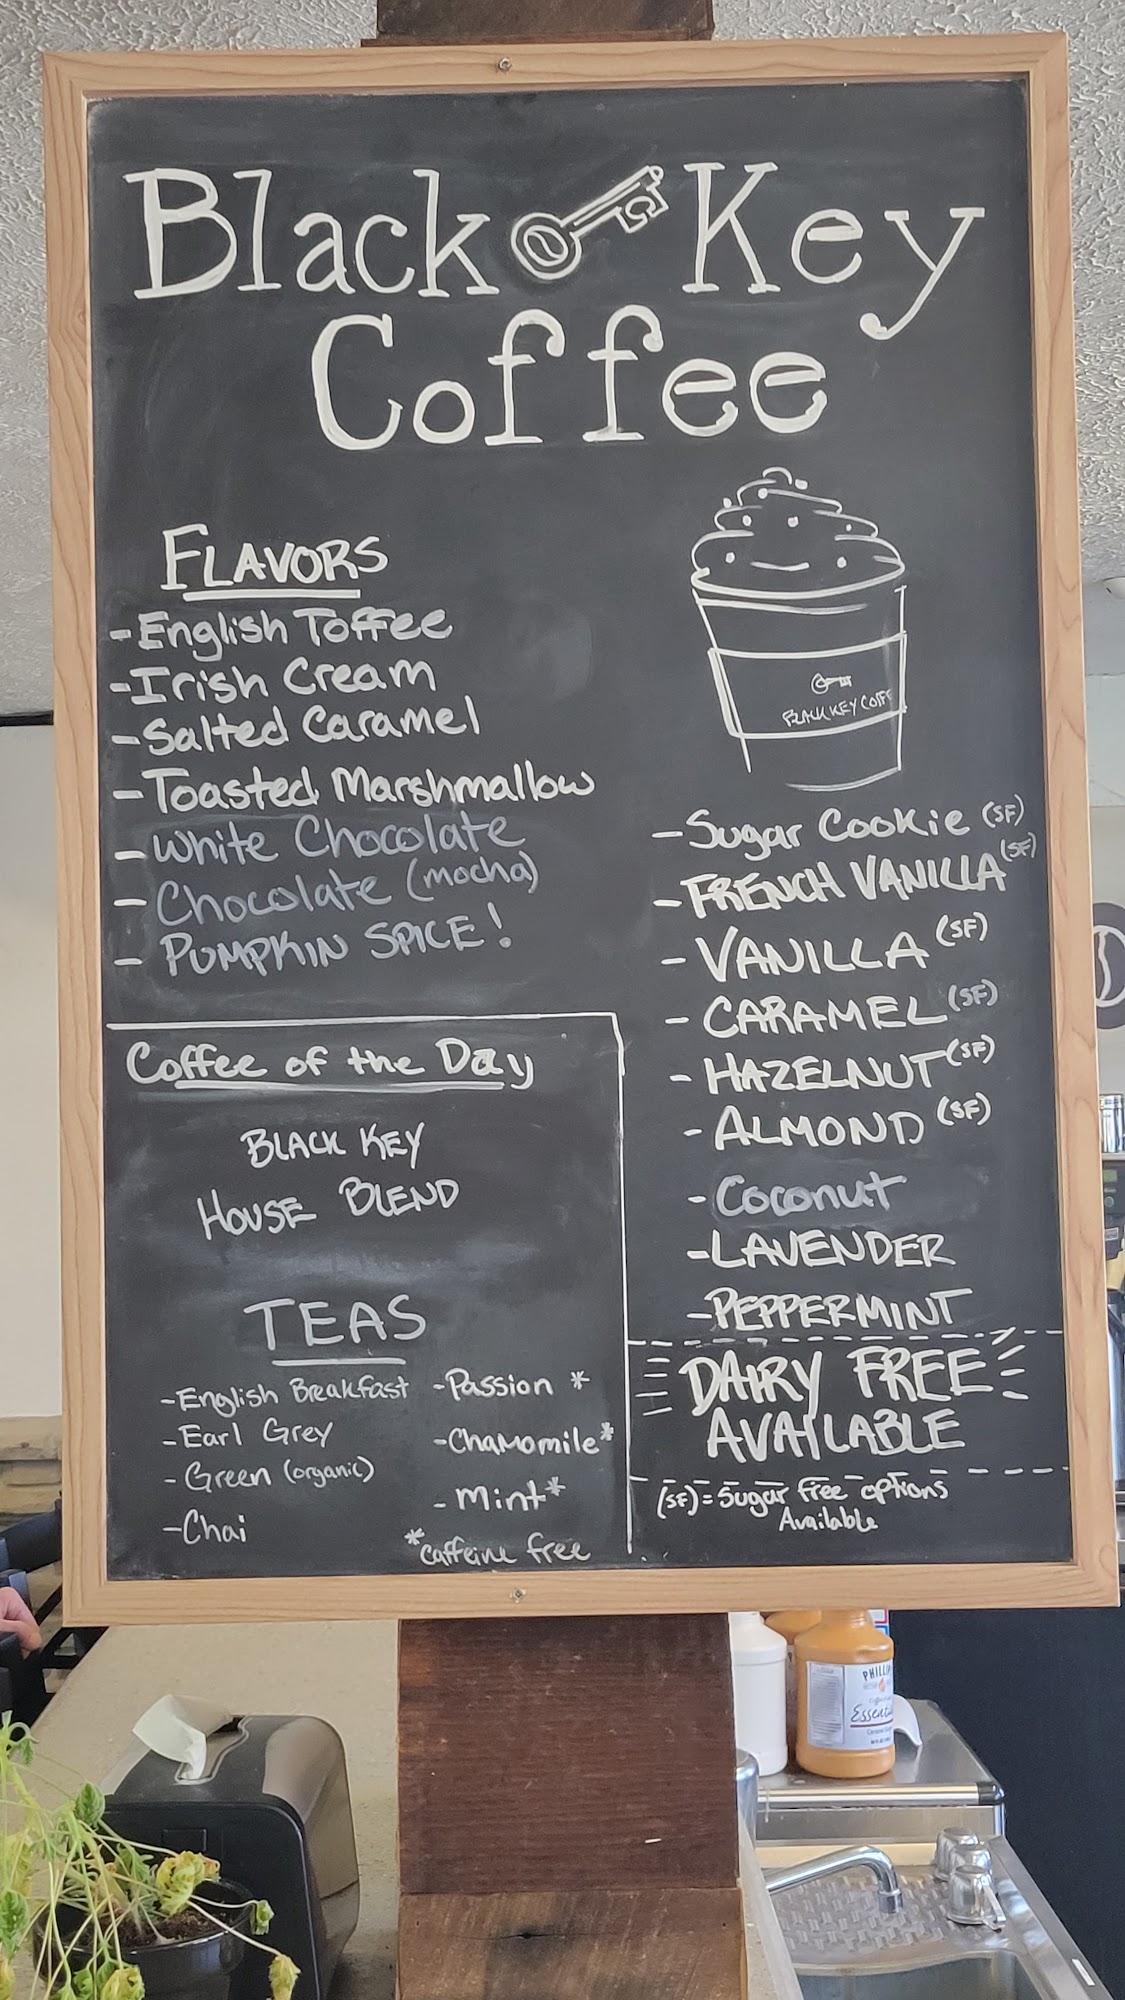 Black Key
Coffee
FLAVORS
- English Toffee
- Irish Cream
- Salted Caramel
- Toasted Marshmallow
- White Chocolate
- Chocolate (mocha)
- PUMPKIN SPICE!
BLACK KEY COFF
- Sugar Cookie (SF)
- FRENCH VANILLA (SF)
- VANILLA (SF)
- CARAMEL (SF)
- HAZELNUT (SF)
- ALMOND (SF)
- Coconut
- LAVENDER
- PEPPERMINT
DAIRY FREE
AVAILABLE
(SF) = Sugar Free options
Available
Coffee of the Day
BLACK KEY
HOUSE BLEND
TEAS
- English Breakfast
- Earl Grey
- Green (organic)
- Chai
- Passion *
- Chamomile *
- Mint *
* caffeine free
PHILLI
Essenti